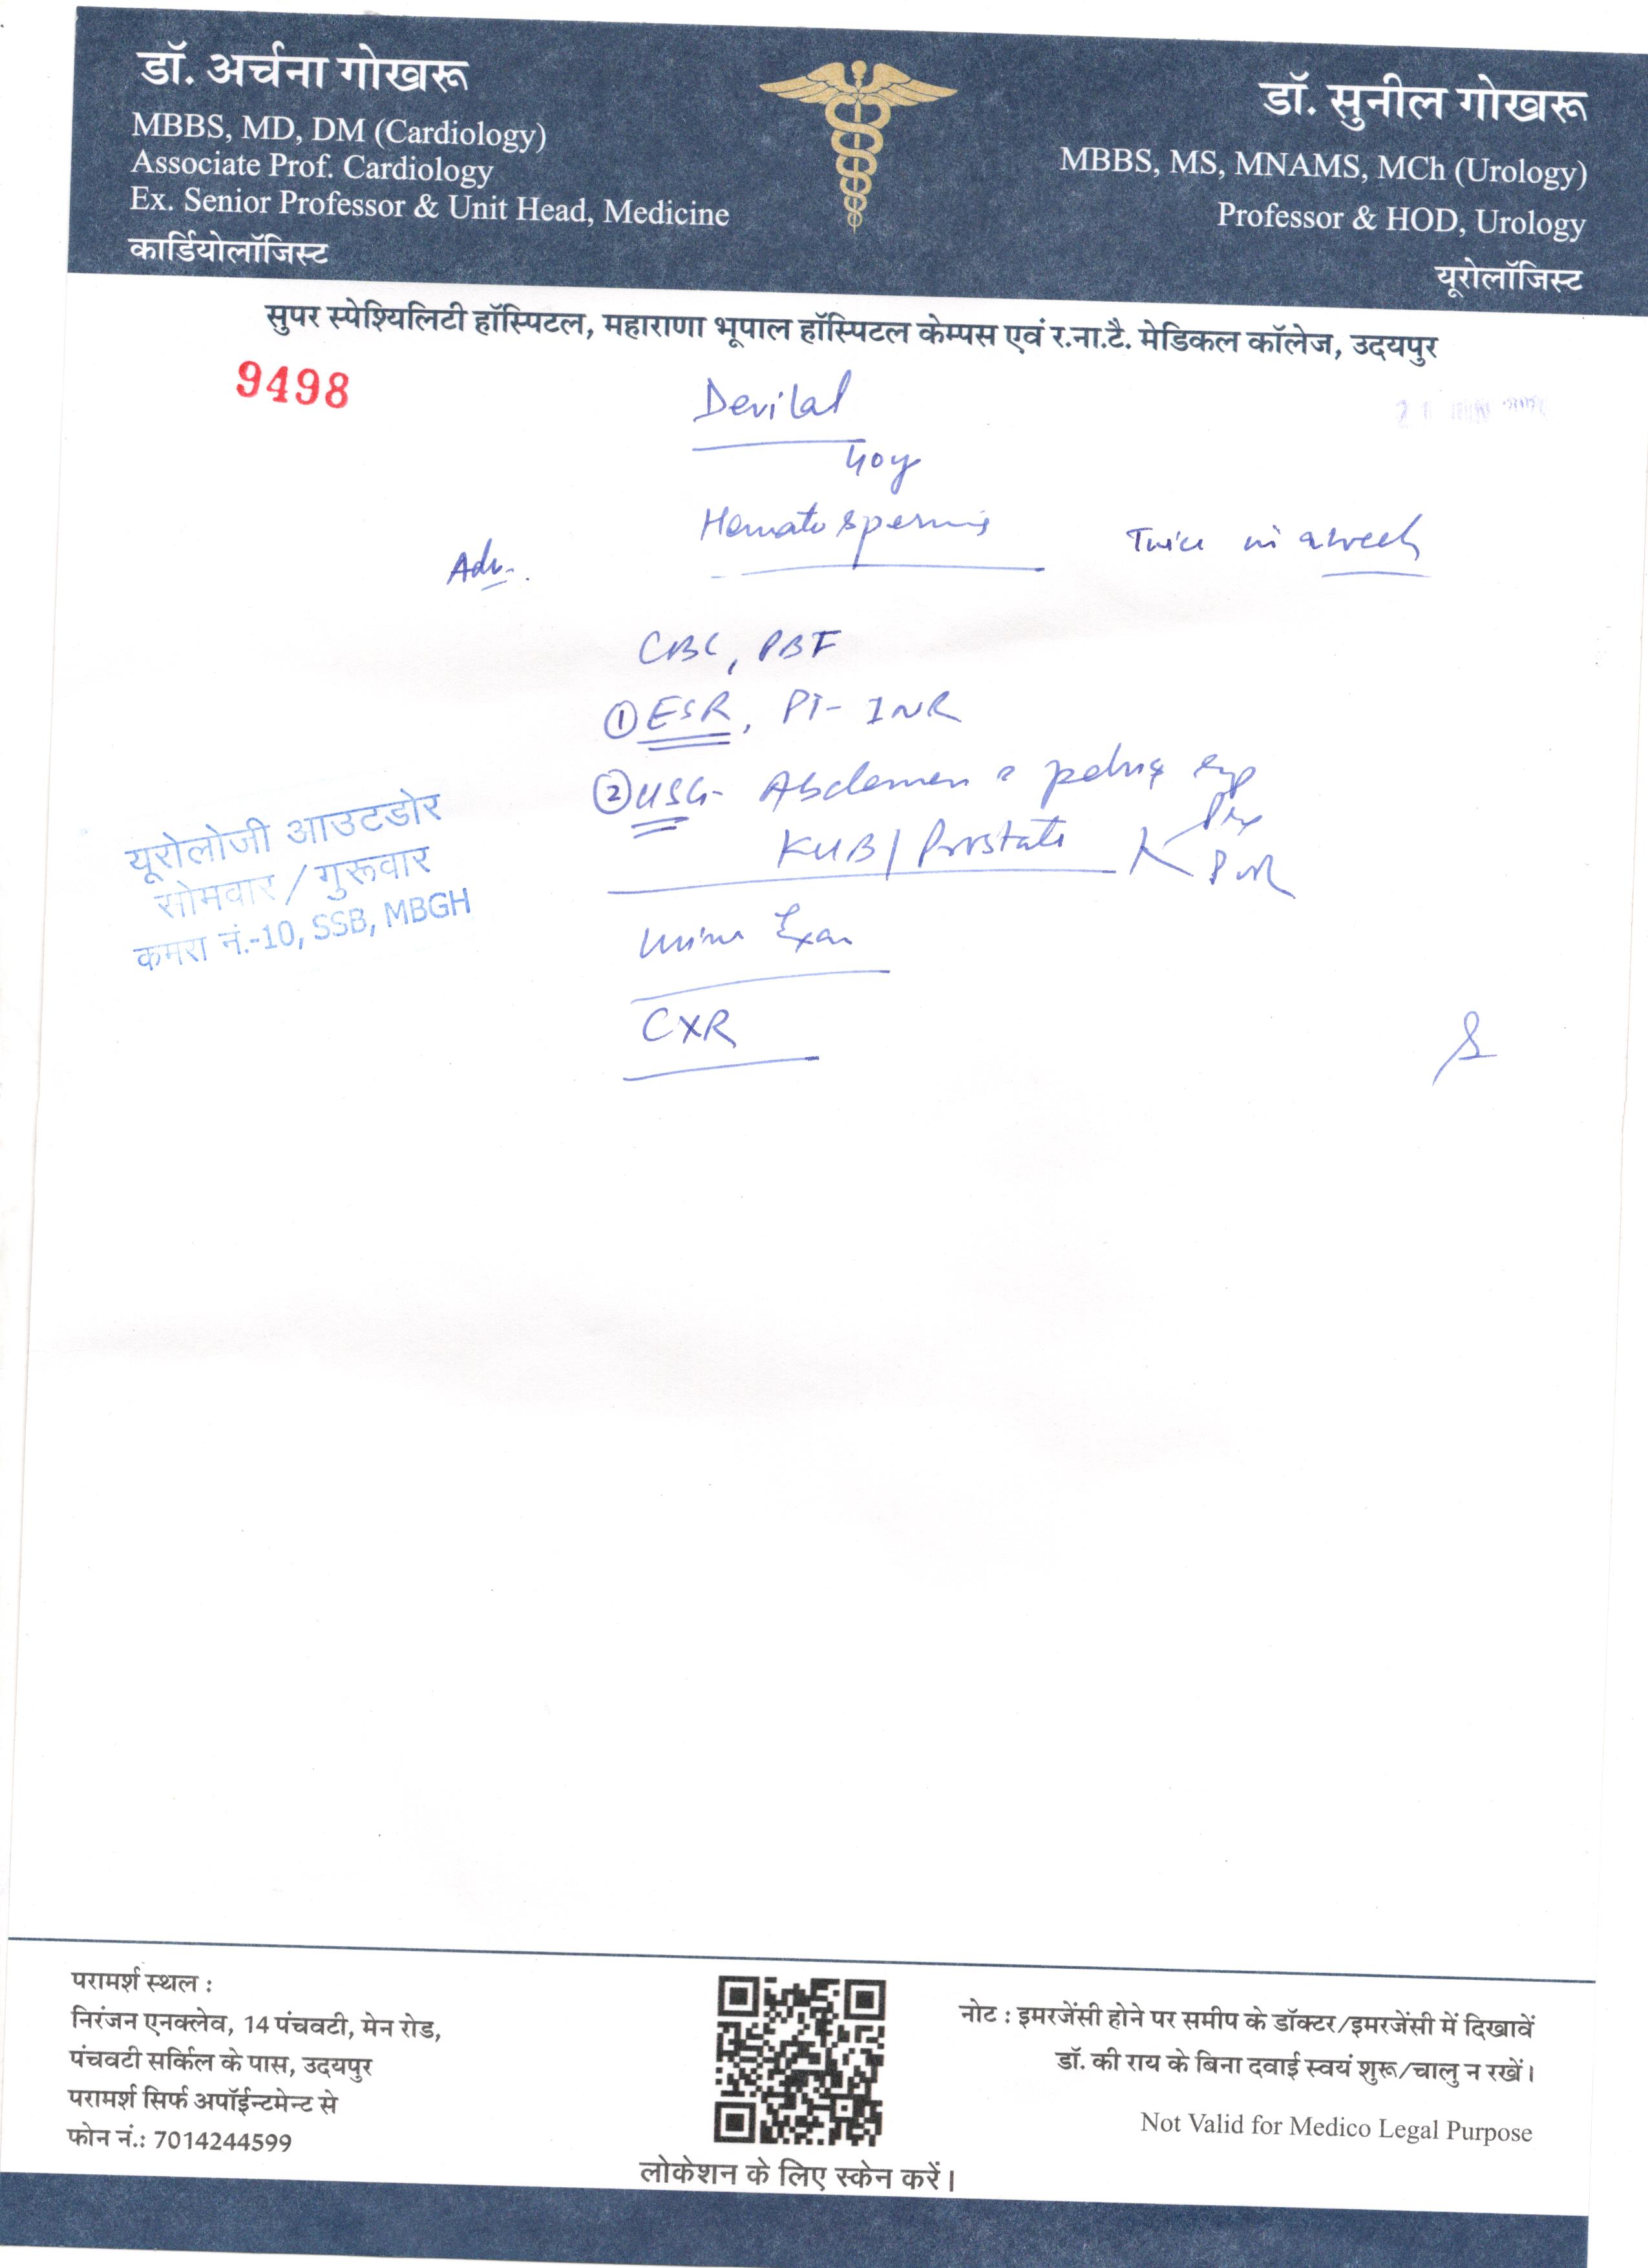 डॉ. अर्चना गोखरू
MBBS, MD, DM (Cardiology)
Associate Prof. Cardiology
Ex. Senior Professor & Unit Head, Medicine
कार्डियोलॉजिस्ट
डॉ. सुनील गोखरू
MBBS, MS, MNAMS, MCh (Urology)
Professor & HOD, Urology
यूरोलॉजिस्ट
सुपर स्पेश्यिलिटी हॉस्पिटल, महाराणा भूपाल हॉस्पिटल केम्पस एवं र.ना.टै. मेडिकल कॉलेज, उदयपुर
9498
Devilal
40y
Hematospermia Twice in a week
Adv.
CBC, PBF
① ESR, PT-INR
② USG- Abdomen pelvis
KUB/Prostate
PVR
Urine Exam
CXR
यूरोलोजी आउटडोर
सोमवार / गुरूवार
कमरा नं.-10, SSB, MBGH
परामर्श स्थल :
निरंजन एनक्लेव, 14 पंचवटी, मेन रोड,
पंचवटी सर्किल के पास, उदयपुर
परामर्श सिर्फ अपॉईन्टमेन्ट से
फोन नं.: 7014244599
लोकेशन के लिए स्केन करें।
नोट : इमरजेंसी होने पर समीप के डॉक्टर/इमरजेंसी में दिखावें
डॉ. की राय के बिना दवाई स्वयं शुरू/चालु न रखें।
Not Valid for Medico Legal Purpose